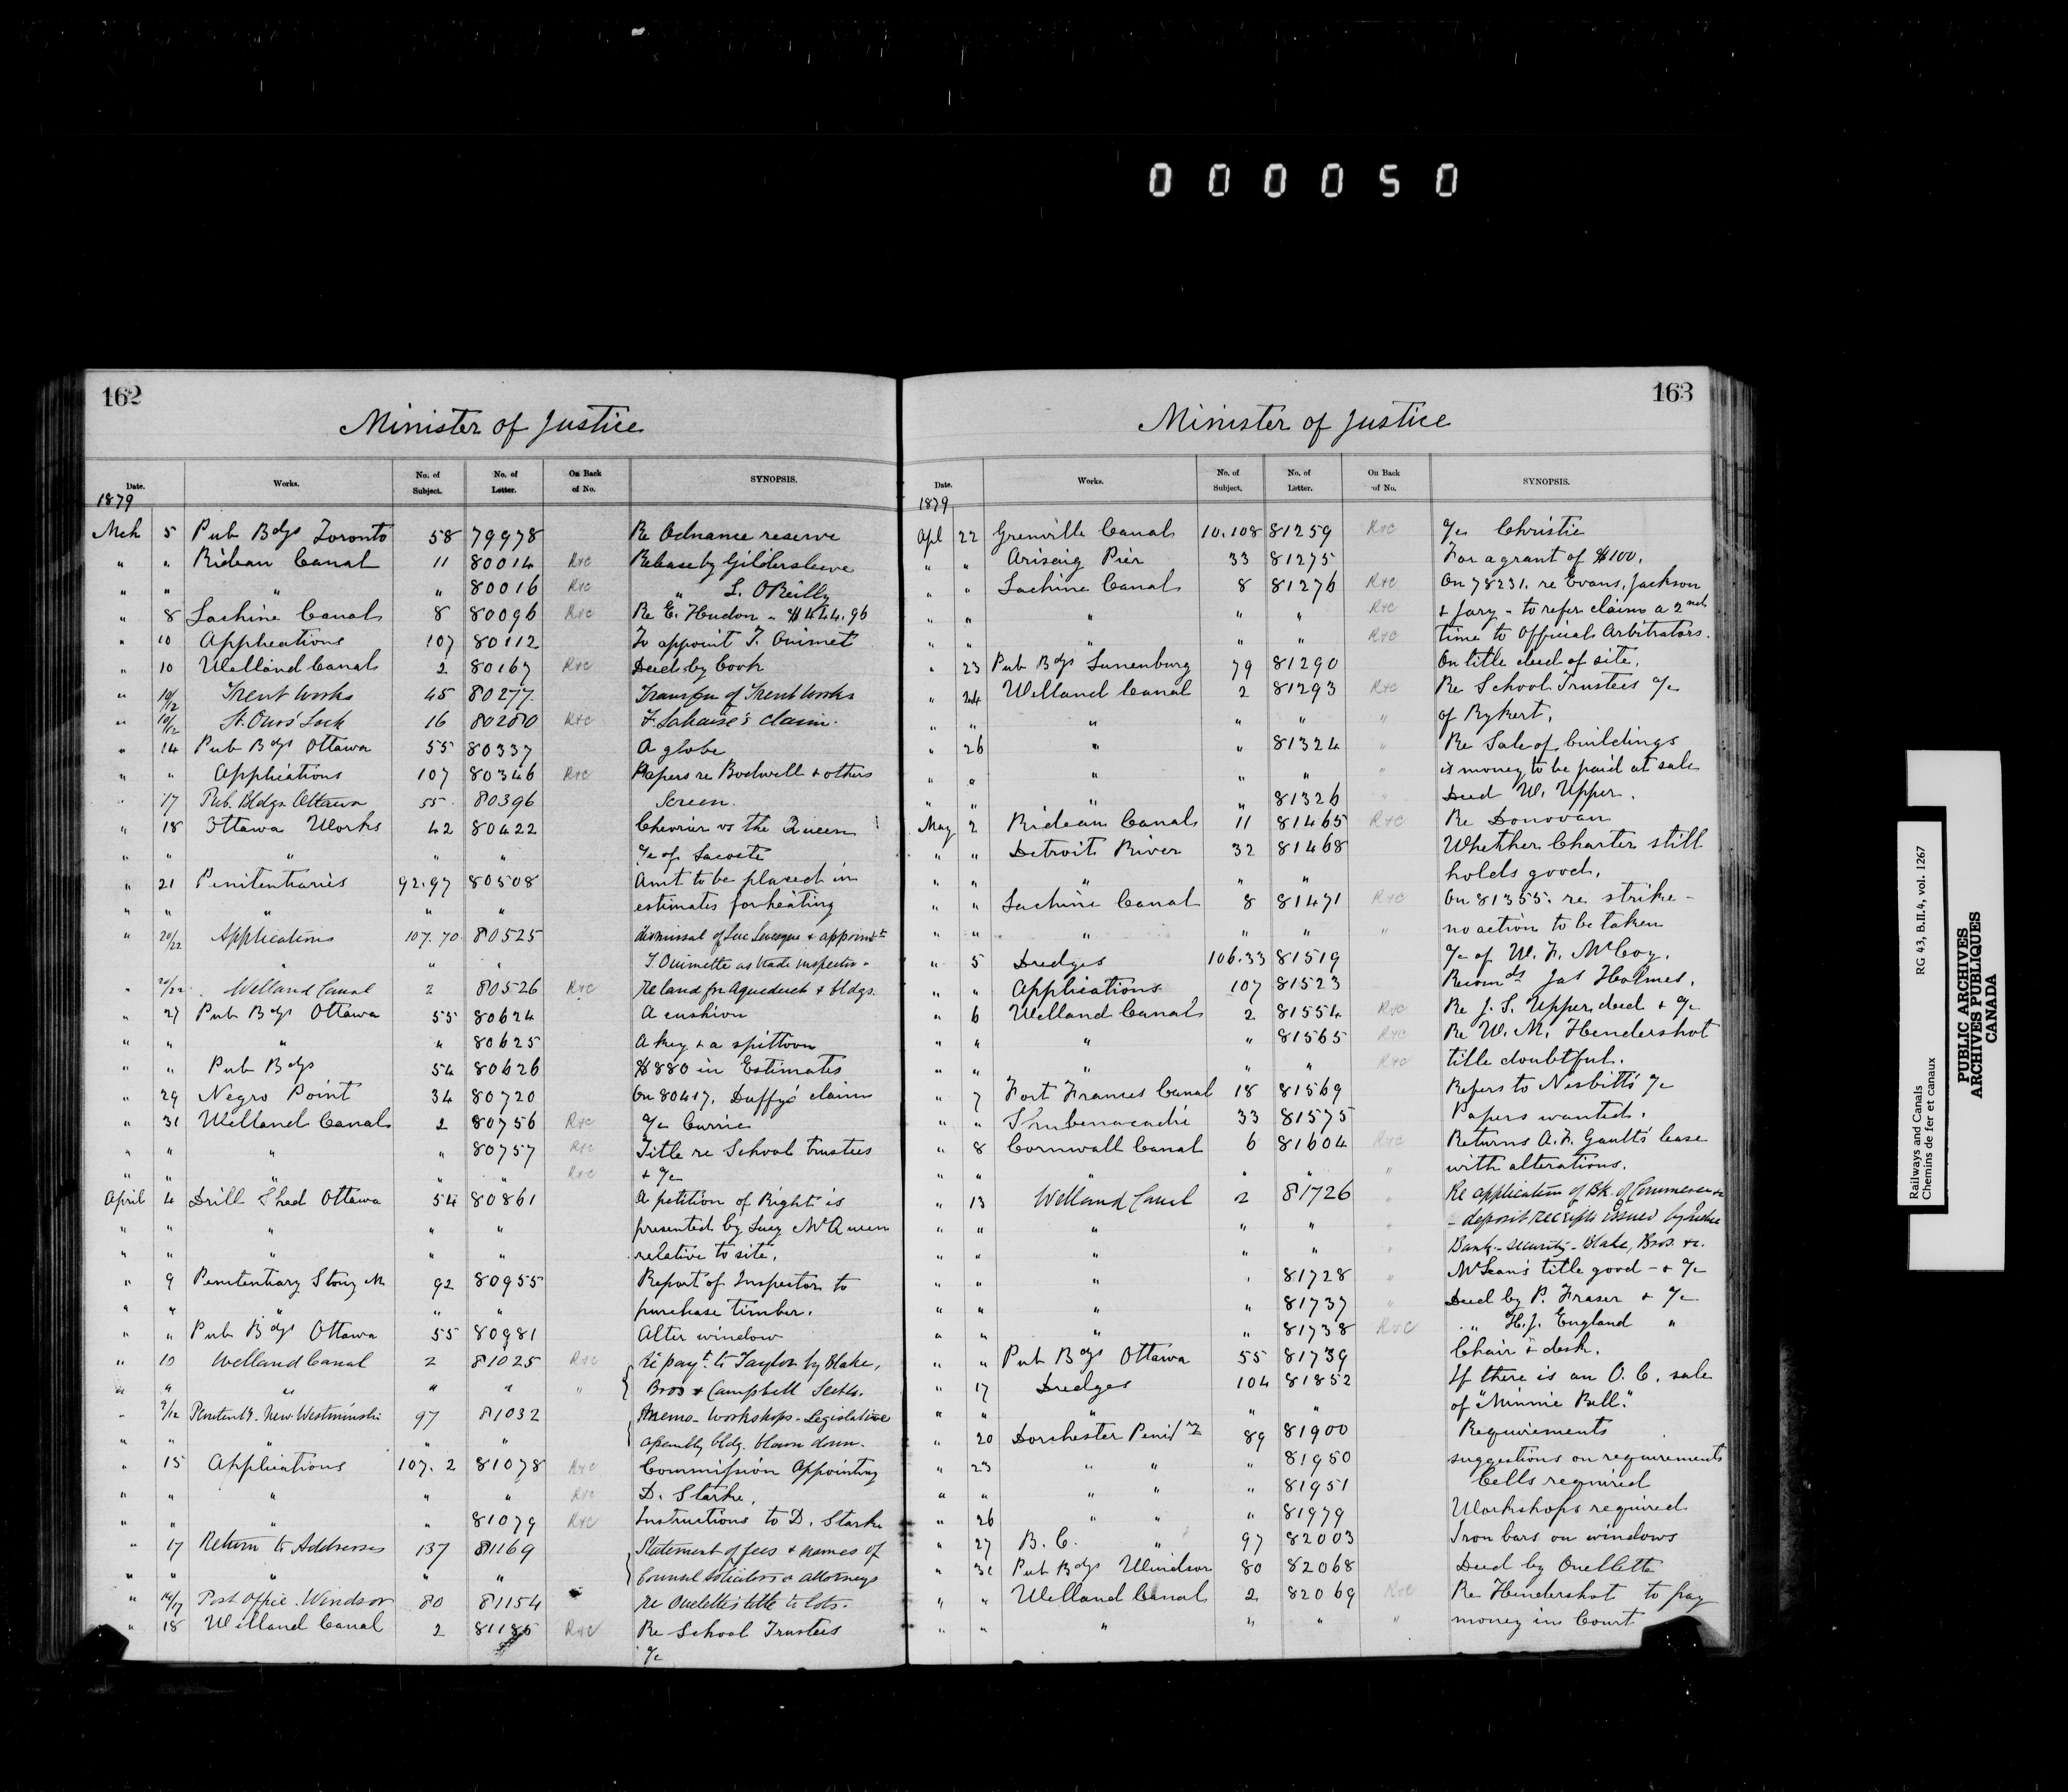 000050
162
Minister of Justice
Date. Works. No. of Subject. No. of Letter. On Back of No. SYNOPSIS.
1879
Mch 5 Pub Bdgs Toronto 58 79978 Re Ordnance reserve
" " Rideau Canal 11 80014 R+C Release by Gildersleeve
" " " " 80016 R+C " L. O'Reilly
" 8 Lachine Canal 8 80096 R+C Re E. Hudon - $444.96
" 10 Applications 107 80112 To appoint T. Ouimet
" 10 Welland Canal 2 80167 R+C Deed by Cook
" 10/12 Trent Works 45 80277 Transfer of Trent Works
" 10/12 St. Ours' Lock 16 80280 R+C claim.
" 14 Pub Bdgs Ottawa 55 80337 A globe
" " Applications 107 80346 R+C Papers re Bodwell & others
" 17 Pub. Bldgs Ottawa 55 80396 Screen.
" 18 Ottawa Works 42 80422 Chevrier vs the Queen
" " " " " a/c of Lacoste
" 21 Penitentiaries 92.97 80508 Amt to be placed in
" " " " " estimates for heating
" 20/22 Applications 107.70 80525 dismissal of Luc Levesque & appointt
" " " T. Ouimette as trade inspector.
" 20/22 Welland Canal 2 80526 R+C Re land for Aqueduct & bldgs.
" 27 Pub Bdgs Ottawa 55 80624 A cushion
" " " " 80625 A key & a spittoon
" " Pub Bdgs 54 80626 $880 in Estimates
" 29 Negro Point 34 80720 On 80417. Duffy's claim
" 31 Welland Canal 2 80756 R+C a/c Currie
" " " " 80757 R+C Title re School trustees
" " " " " R+C & a/c
April 4 Drill Shed Ottawa 54 80861 A petition of Right is
" " " " " presented by Lucy McQueen
" " " " " relative to site.
" 9 Penitentiary Stony M 92 80955 Report of Inspector to
" " " " " purchase timber.
" " Pub Bdgs Ottawa 55 80981 Alter window
" 10 Welland Canal 2 81025 R+C Re payt. to Taylor by Blake,
" " " " " " Bros & Campbell
" 9/12 Penitenty. New Westminster 97 81032 Memo - Workshops - Legislative
" " " " " assembly bldg. blown down.
" 15 Applications 107.2 81078 R+C Commission Appointing
" " " " " R+C D. Starke.
" " " " 81079 R+C Instructions to D. Starke
" 17 Return to Addresses 137 81169 Statement of fees & names of
" " " " " Counsel Solicitors & attorneys
" 16/17 Post Office. Windsor 80 81154 Re Ouelette's title to lots.
" 18 Welland Canal 2 81185 R+C Re School Trustees
a/c
163
Minister of Justice
Date. Works. No. of Subject. No. of Letter. On Back of No. SYNOPSIS.
1879
Apl 22 Grenville Canal 10.108 81259 R+C a/c Christie
" " Arisaig Pier 33 81275 For a grant of $100.
" " Lachine Canal 8 81276 R+C On 78231. re Evans, Jackson
" " " " " R+C & Jary - to refer claim a 2nd
" " " " " R+C time to Official Arbitrators.
" 23 Pub Bdgs Lunenburg 79 81290 On title deed of site.
" 24 Welland Canal 2 81293 R+C Re School Trustees a/c
" " " " " " of Rykert.
" 26 " " 81324 " Re Sale of buildings
" " " " " " is money to be paid at sale
" " " " 81326 " Deed W. Upper.
May 2 Rideau Canal 11 81465 R+C Re Donovan
" " Detroit River 32 81468 Whether Charter still
" " " " " holds good.
" " Lachine Canal 8 81471 R+C On 81355. re strike -
" " " " " " no action to be taken
" 5 Dredges 106.33 81519 a/c of W. F. McCoy.
" " Applications 107 81523 Recomds Jas Holmes.
" 6 Welland Canal 2 81554 R+C Re J. S. Upper, deed & a/c
" " " " 81565 R+C Re W. M. Hendershot
" " " " " R+C title doubtful.
" 7 Fort Frances Canal 18 81569 Refers to Nesbitt's a/c
" " Shubenacadie 33 81575 Papers wanted.
" 8 Cornwall Canal 6 81604 R+C Returns A. F. Gault's lease
" " " " " " with alterations.
" 13 Welland Canal 2 81726 " Re application of Bk. of Commerce
" " " " " " - deposit receipts issued by
" " " " " " Bank - security - Blake, Bros. &c.
" " " " 81728 " McLean's title good - & a/c
" " " " 81737 " Deed by P. Fraser & a/c
" " " " 81738 R+C " H. J. England "
" " Pub Bdgs Ottawa 55 81739 Chair & desk.
" 17 Dredges 104 81852 If there is an O. C. sale
" " " " " of "Minnie Bell."
" 20 Dorchester Penity 89 81900 Requirements
" 23 " " " 81950 suggestions on requirements
" " " " " 81951 Cells required
" 26 " " " 81979 Workshops required
" 27 B. C. " 97 82003 Iron bars on windows
" 31 Pub Bdgs Windsor 80 82068 Deed by Ouellette
" " Welland Canal 2 82069 R+C Re Hendershot to pay
" " " " " " money in Court
Railways and Canals RG 43, B.II.4, vol. 1267
Chemins de fer et canaux
PUBLIC ARCHIVES
ARCHIVES PUBLIQUES
CANADA